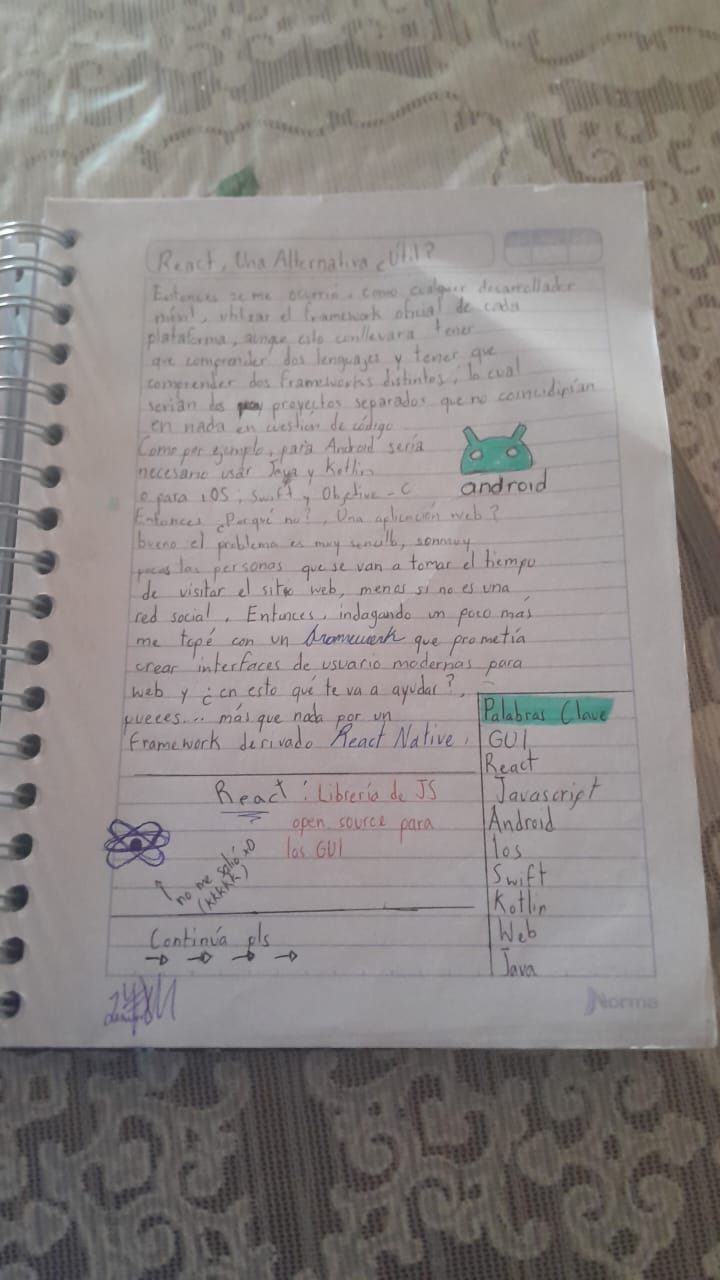 React, Una Alternativa ¿Útil?
Entonces se me ocurrió, como cualquier desarrollador
móvil, utilizar el framework oficial de cada
plataforma, aunque esto conllevara tener
que comprender dos lenguajes y tener que
comprender dos frameworks distintos, lo cual
serían dos proyectos separados que no coincidirían
en nada en cuestión de código
Como por ejemplo, para Android sería
necesario usar Java y Kotlin
o para iOS; Swift y Objetive-C
android
Entonces ¿Por qué no?, Una aplicación web?
bueno el problema es muy sencillo, son muy
pocas las personas que se van a tomar el tiempo
de visitar el sitio web, menos si no es una
red social. Entonces, indagando un poco más
me topé con un framework que prometía
crear interfaces de usuario modernas para
web y ¿en esto qué te va a ayudar?,
pueces... más que nada por un
framework derivado React Native.
Palabras Clave
GUI
React
Javascript
Android
Ios
Swift
Kotlin
Web
Java
React: Librería de JS
open source para
las GUI
no me salió xD
(kkkkk)
Continúa pls
Norma